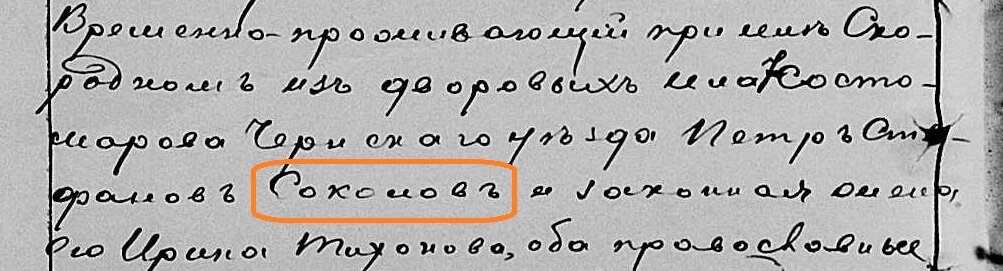 Временно-проживающій при имѣ Ско-
родномъ изъ дворовыхъ и-ка Косто-
марова Чернскаго уѣзда Петръ Сте-
фановъ Соколовъ и законная жена
его Ирина Тихонова, оба православные